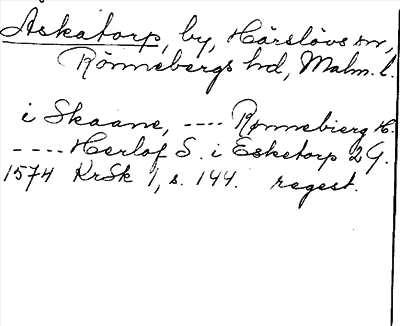 Åskatorp, by, Härslövs sn,
Rönnebergs hd, Malm. l.
i Skaane, ---- Rønnebierg H.
---- Herlof S. i Esketorp 2 G.
1574 KrSk 1, s. 144. regest.